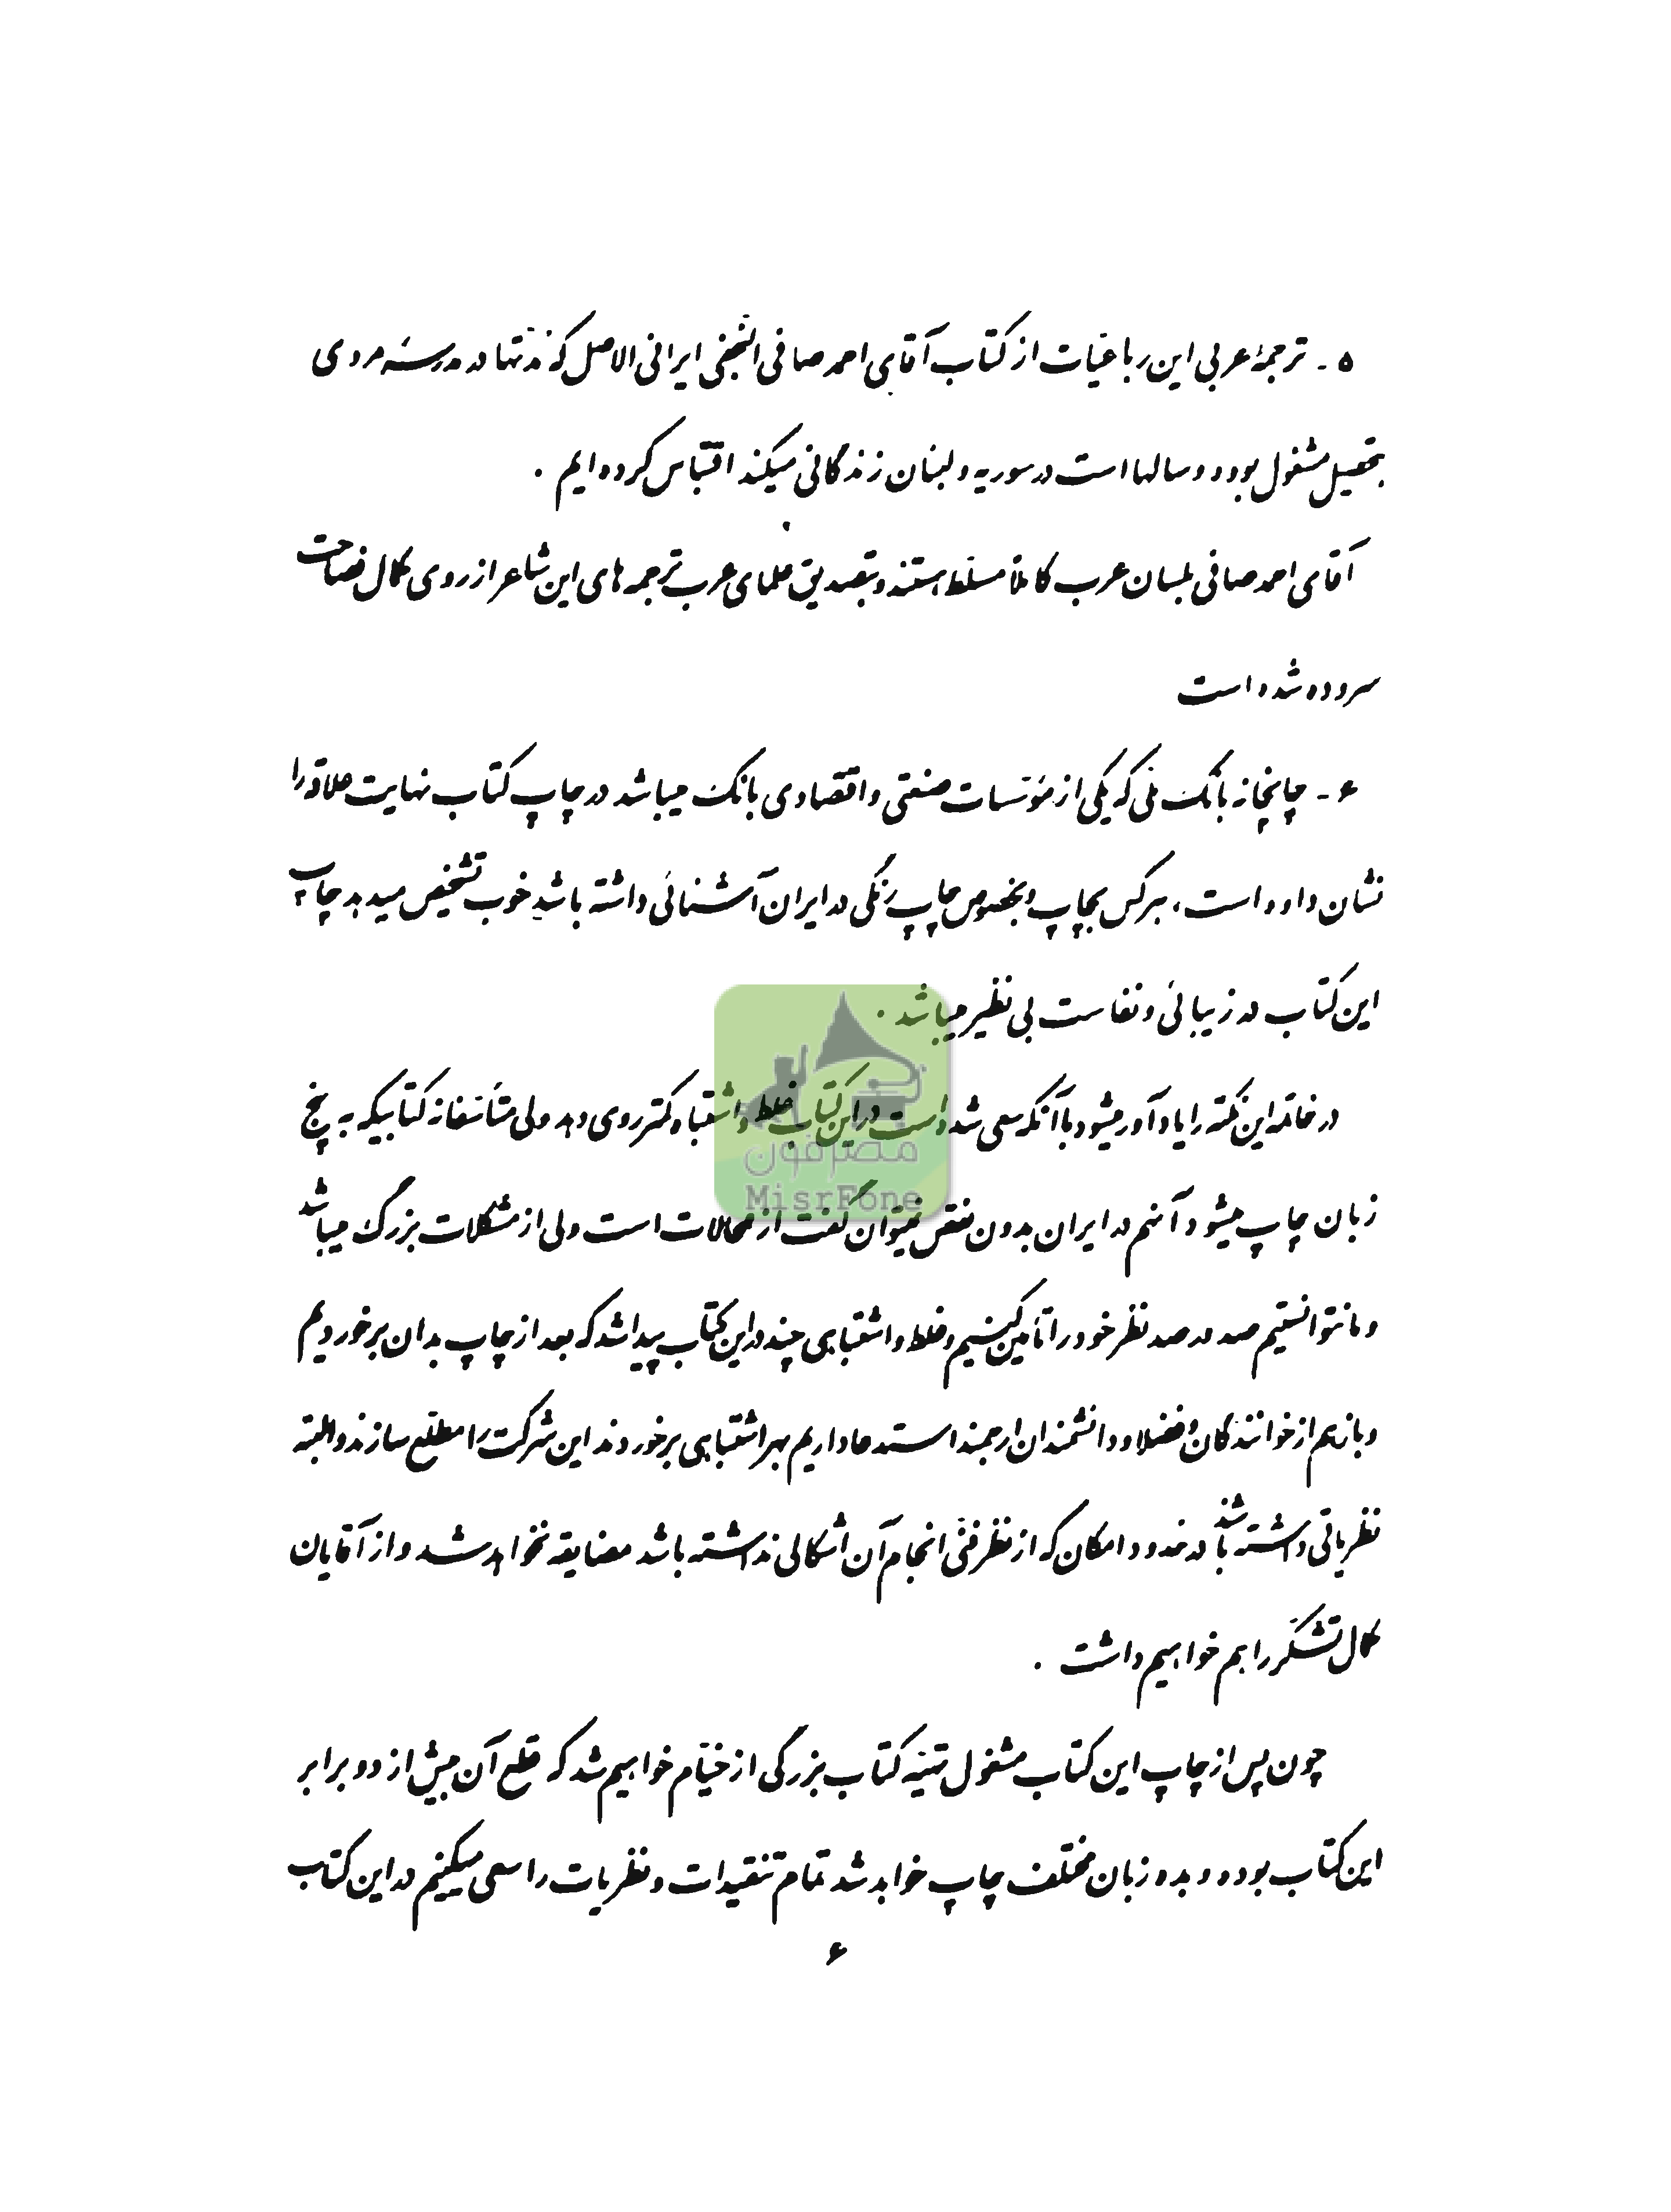 ۵ - ترجمهٔ عربی این رباعیات از کتاب آقای احمد صافی النجفی ایرانی الاصل که مدتها در مدرسه مروی
بتحصیل مشغول بوده و سالها است در سوریه و لبنان زندگانی میکند اقتباس کرده ایم .
آقای احمد صافی بلسان عرب کاملاً مسلط هستند و بتصدیق علمای عرب ترجمه های این شاعر از روی کمال فصاحت
سروده شده است
۶ - چاپخانه بانک ملی که یکی از مؤسسات صنعتی و اقتصادی بانک میباشد در چاپ کتاب نهایت علاقه را
نشان داده است ، هرکس بچاپ و بخصوص چاپ رنگی در ایران آشنائی داشته باشد خوب تشخیص میدهد چاپ
این کتاب در زیبائی و نفاست بی نظیر میباشد .
در خاتمه این نکته را یادآور میشود با آنکه سعی شده است در این کتاب غلط و اشتباه کمتر روی دهد ولی متأسفانه کتابیکه به پنج
زبان چاپ میشود آنهم در ایران بدون نقص نمیتوان گفت از محالات است ولی از مشکلات بزرگ میباشد
و ما نتوانستیم صد در صد نظر خود را تأمین کنیم و غلط و اشتباهی چند در این کتاب پیدا شد که بعد از چاپ بدان برخوردیم
و بازهم از خوانندگان و فضلا و دانشمندان ارجمند استدعا داریم بهر اشتباهی برخوردند این شرکت را مطلع سازند و البته
نظریاتی داشته باشند در حدود امکان که از نظر فنی انجام آن اشکالی نداشته باشد مضایقه نخواهد شد و از آقایان
کمال تشکر را هم خواهیم داشت .
چون پس از چاپ این کتاب مشغول تهیه کتاب بزرگی از خیام خواهیم شد که قطع آن بیش از دو برابر
این کتاب بوده و بده زبان مختلف چاپ خواهد شد تمام تنقیدات و نظریات را سعی میکنیم در این کتاب
۶
مصرفون
MisrFone